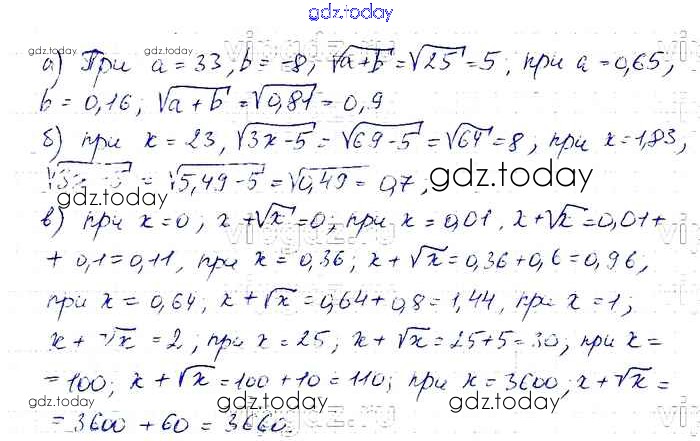 gdz.today
а) При a = 33, b = -8, √a+b = √25 = 5, при a = 0,65,
b = 0,16, √a+b = √0,81 = 0,9
б) при x = 23, √3x-5 = √69-5 = √64 = 8, при x = 1,83,
√3x-5 = √5,49-5 = √0,49 = 0,7,
в) при x = 0, x + √x = 0; при x = 0,01, x + √x = 0,01 +
+ 0,1 = 0,11, при x = 0,36; x + √x = 0,36 + 0,6 = 0,96,
при x = 0,64, x + √x = 0,64 + 0,8 = 1,44, при x = 1;
x + √x = 2; при x = 25, x + √x = 25 + 5 = 30, при x =
= 100; x + √x = 100 + 10 = 110; при x = 3600, x + √x =
= 3600 + 60 = 3660.
gdz.today
gdz.today
gdz.today
gdz.today
gdz.today
gdz.today
gdz.today
gdz.today
gdz.today
gdz.today